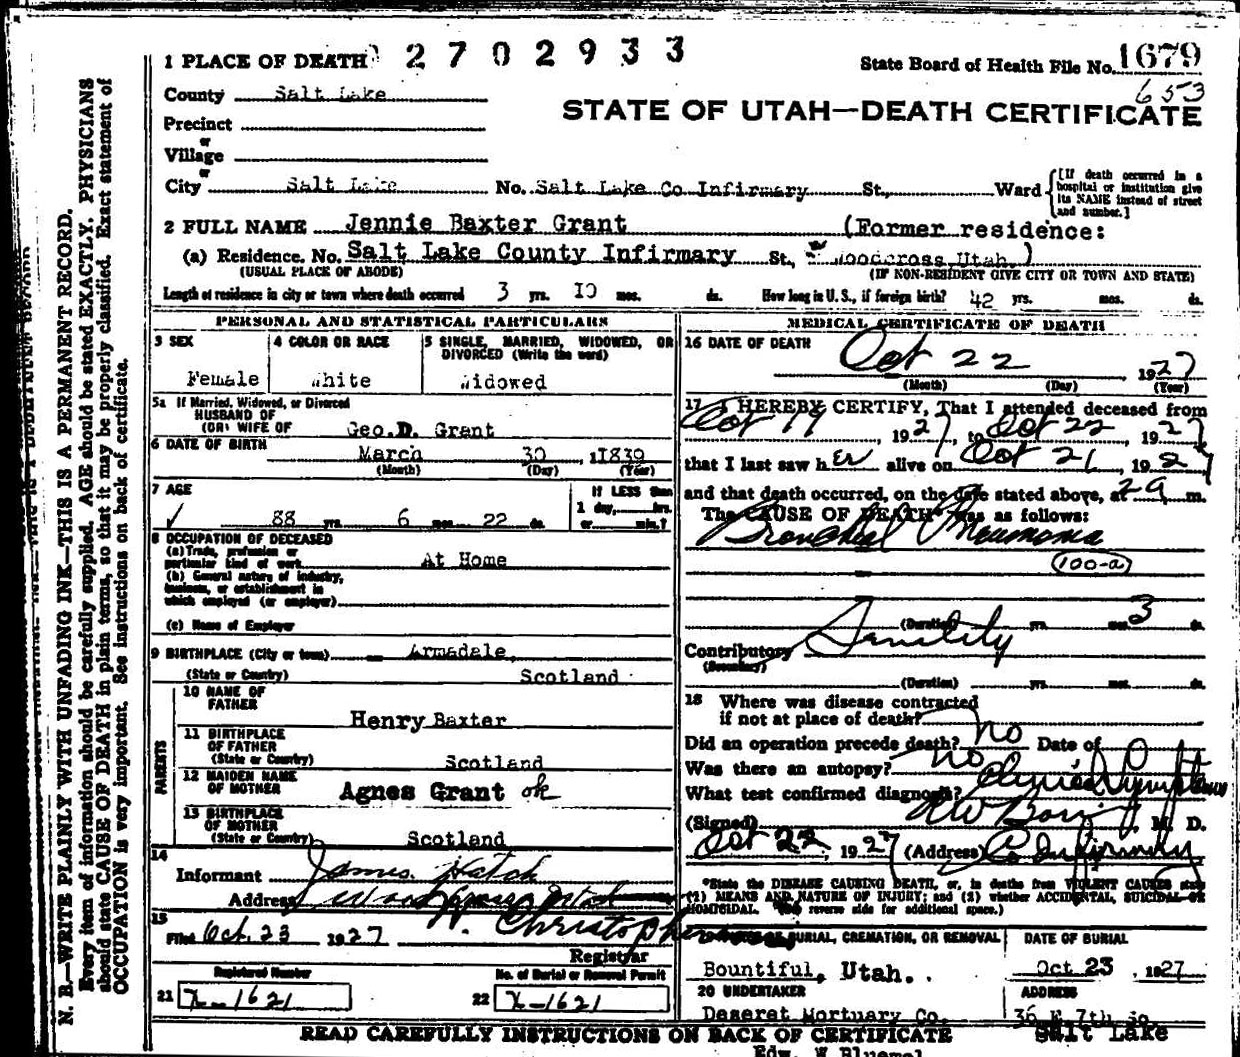 1 PLACE OF DEATH 2 7 0 2 9 3 3
State Board of Health File No. 1679
653
County Salt Lake
STATE OF UTAH—DEATH CERTIFICATE
Precinct
or
Village
or
City Salt Lake No. Salt Lake Co Infirmary St., Ward
[If death occurred in a hospital or institution give its NAME instead of street and number.]
2 FULL NAME Jennie Baxter Grant (Former residence:
(a) Residence. No. Salt Lake County Infirmary St., Woodcross Utah.)
(USUAL PLACE OF ABODE) (IF NON-RESIDENT GIVE CITY OR TOWN AND STATE)
Length of residence in city or town where death occurred 3 yrs. 10 mos. ds. How long in U. S., if foreign birth? 42 yrs. mos. ds.
PERSONAL AND STATISTICAL PARTICULARS
3 SEX
Female
4 COLOR OR RACE
White
5 SINGLE, MARRIED, WIDOWED, OR DIVORCED (Write the word)
Widowed
5a If Married, Widowed, or Divorced
HUSBAND OF
(OR) WIFE OF Geo. D. Grant
6 DATE OF BIRTH March 30 1839
(Month) (Day) (Year)
7 AGE
88 yrs. 6 mos. 22 ds.
If LESS than
1 day, hrs.
or min.?
8 OCCUPATION OF DECEASED
(a) Trade, profession or
particular kind of work At Home
(b) General nature of industry,
business, or establishment in
which employed (or employer)
(c) Name of Employer
9 BIRTHPLACE (City or town) Armadale,
(State or Country) Scotland
PARENTS
10 NAME OF
FATHER Henry Baxter
11 BIRTHPLACE
OF FATHER
(State or Country) Scotland
12 MAIDEN NAME
OF MOTHER Agnes Grant ok
13 BIRTHPLACE
OF MOTHER
(State or Country) Scotland
14
Informant James Hatch
Address Woods Cross Utah
15
Filed Oct. 23 1927 W. Christopherson
Registrar
Registered Number
21 X-1621
No. of Burial or Removal Permit
22 X-1621
MEDICAL CERTIFICATE OF DEATH
16 DATE OF DEATH
Oct 22 1927
(Month) (Day) (Year)
17 I HEREBY CERTIFY, That I attended deceased from
Oct 17, 1927, to Oct 22, 1927
that I last saw her alive on Oct 21, 1927
and that death occurred, on the date stated above, at 2 a m.
The CAUSE OF DEATH* was as follows:
Bronchial Pneumonia
(100-a)
(Duration) yrs. mos. 3 ds.
Contributory Senility
(Secondary)
(Duration) yrs. mos. ds.
18 Where was disease contracted
if not at place of death?
Did an operation precede death? no Date of
Was there an autopsy? no
What test confirmed diagnosis? Clinical Symptoms
(Signed) M. D.
Oct 22, 1927 (Address) Co Infirmary
*State the DISEASE CAUSING DEATH, or, in deaths from VIOLENT CAUSES state
(1) MEANS AND NATURE OF INJURY; and (2) whether ACCIDENTAL, SUICIDAL OR
HOMICIDAL. (See reverse side for additional space.)
19 PLACE OF BURIAL, CREMATION, OR REMOVAL
Bountiful, Utah.
DATE OF BURIAL
Oct 23, 1927
20 UNDERTAKER
Deseret Mortuary Co.
ADDRESS
36 E 7th So.
Salt Lake
READ CAREFULLY INSTRUCTIONS ON BACK OF CERTIFICATE
Edw. W Bluemel
N. B.—WRITE PLAINLY WITH UNFADING INK—THIS IS A PERMANENT RECORD.
Every item of information should be carefully supplied. AGE should be stated EXACTLY. PHYSICIANS
should state CAUSE OF DEATH in plain terms, so that it may be properly classified. Exact statement of
OCCUPATION is very important. See instructions on back of certificate.